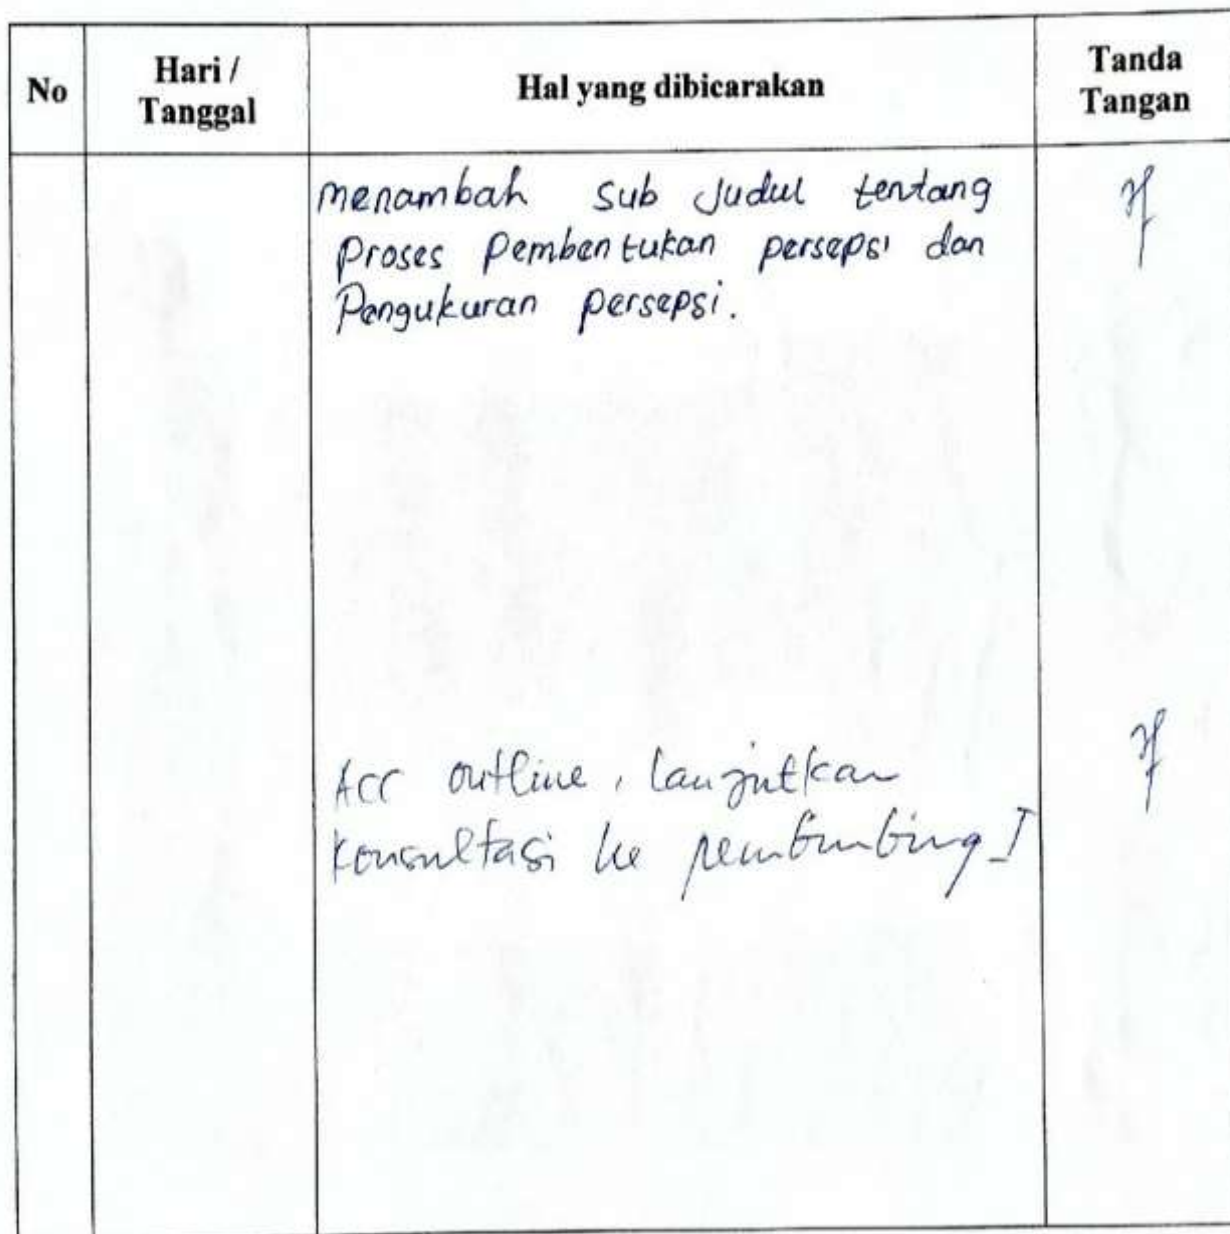 No
Hari /
Tanggal
Hal yang dibicarakan
Tanda
Tangan
menambah sub Judul tentang
Proses Pembentukan persepsi dan
Pengukuran persepsi.
Acc outline, lanjutkan
konsultasi ke pembimbing I